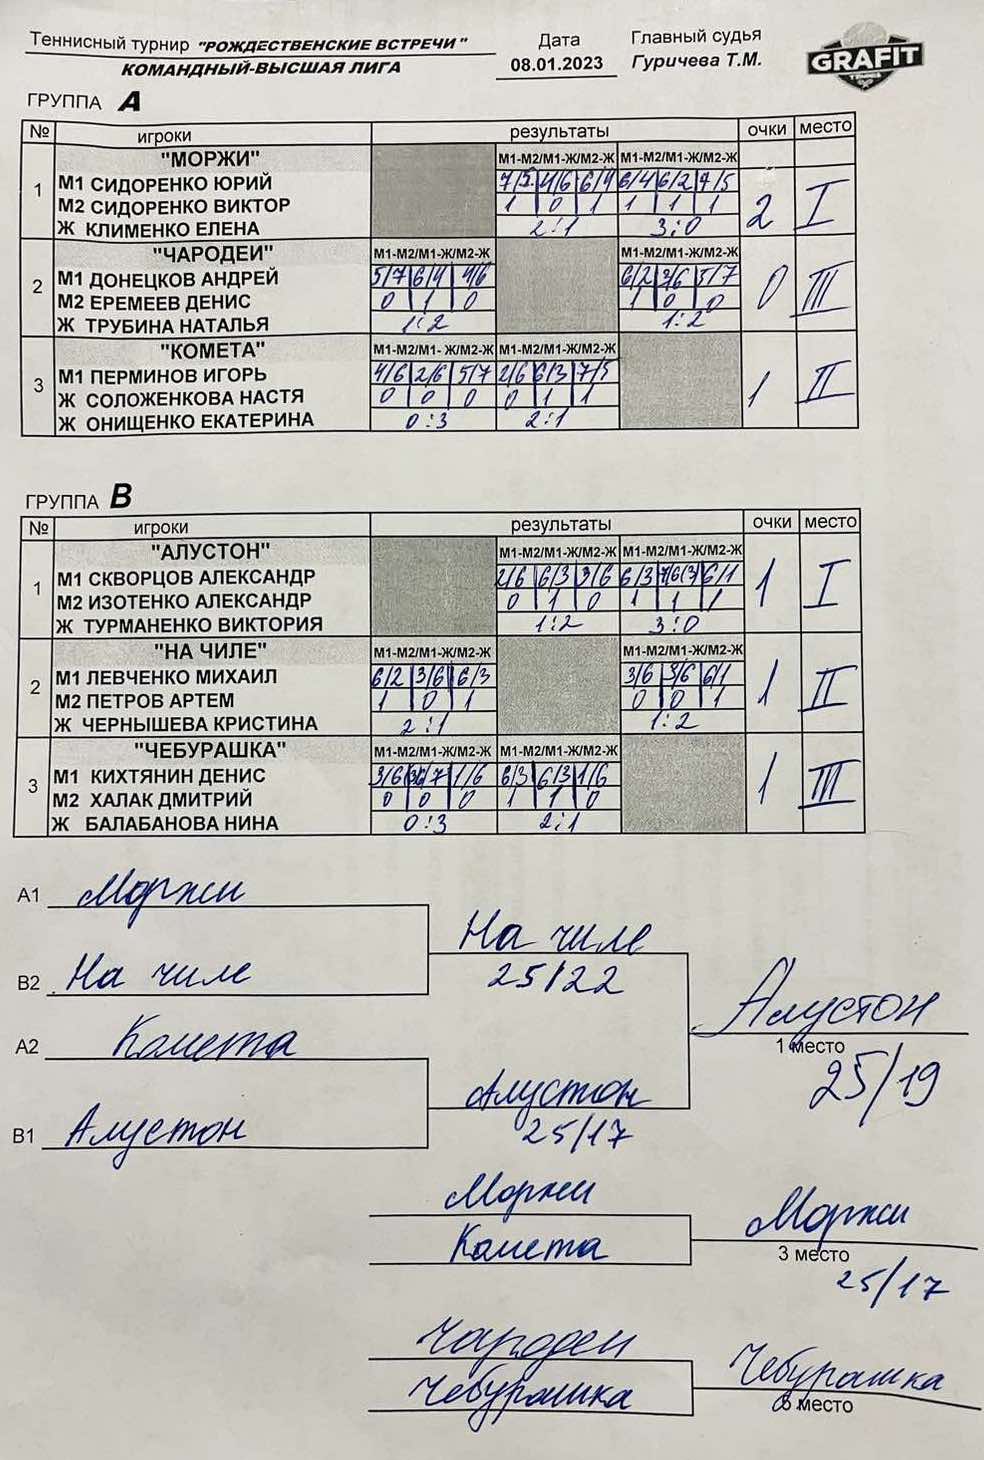 Теннисный турнир "РОЖДЕСТВЕНСКИЕ ВСТРЕЧИ" Дата Главный судья
КОМАНДНЫЙ-ВЫСШАЯ ЛИГА 08.01.2023 Гуричева Т.М. GRAFIT
ГРУППА A
№ игроки результаты очки место
"МОРЖИ" М1-М2/М1-Ж/М2-Ж М1-М2/М1-Ж/М2-Ж
1 М1 СИДОРЕНКО ЮРИЙ 7/5 4/6 6/4 6/4 6/2 7/5
М2 СИДОРЕНКО ВИКТОР 1 0 1 1 1 1 2 I
Ж КЛИМЕНКО ЕЛЕНА 2:1 3:0
"ЧАРОДЕИ" М1-М2/М1-Ж/М2-Ж М1-М2/М1-Ж/М2-Ж
2 М1 ДОНЕЦКОВ АНДРЕЙ 5/7 6/4 4/6 6/2 3/6 5/7
М2 ЕРЕМЕЕВ ДЕНИС 0 1 0 1 0 0 0 III
Ж ТРУБИНА НАТАЛЬЯ 1:2 1:2
"КОМЕТА" М1-М2/М1- Ж/М2-Ж М1-М2/М1-Ж/М2-Ж
3 М1 ПЕРМИНОВ ИГОРЬ 4/6 2/6 5/7 2/6 6/3 7/5
Ж СОЛОЖЕНКОВА НАСТЯ 0 0 0 0 1 1 1 II
Ж ОНИЩЕНКО ЕКАТЕРИНА 0:3 2:1
ГРУППА B
№ игроки результаты очки место
"АЛУСТОН" М1-М2/М1-Ж/М2-Ж М1-М2/М1-Ж/М2-Ж
1 М1 СКВОРЦОВ АЛЕКСАНДР 2/6 6/3 3/6 6/3 7/6(3) 6/1
М2 ИЗОТЕНКО АЛЕКСАНДР 0 1 0 1 1 1 1 I
Ж ТУРМАНЕНКО ВИКТОРИЯ 1:2 3:0
"НА ЧИЛЕ" М1-М2/М1-Ж/М2-Ж М1-М2/М1-Ж/М2-Ж
2 М1 ЛЕВЧЕНКО МИХАИЛ 6/2 3/6 6/3 3/6 3/6 6/1
М2 ПЕТРОВ АРТЕМ 1 0 1 0 0 1 1 II
Ж ЧЕРНЫШЕВА КРИСТИНА 2:1 1:2
"ЧЕБУРАШКА" М1-М2/М1-Ж/М2-Ж М1-М2/М1-Ж/М2-Ж
3 М1 КИХТЯНИН ДЕНИС 3/6 1/6 6/3 6/3 1/6
М2 ХАЛАК ДМИТРИЙ 0 0 0 1 1 0 1 III
Ж БАЛАБАНОВА НИНА 0:3 2:1
A1 Моржи
На чиле
B2 На чиле 25/22
Алустон
A2 Комета 1 место
25/19
Алустон
B1 Алустон 25/17
Моржи
Моржи
Комета 3 место
25/17
Чародеи
Чебурашка
Чебурашка 5 место